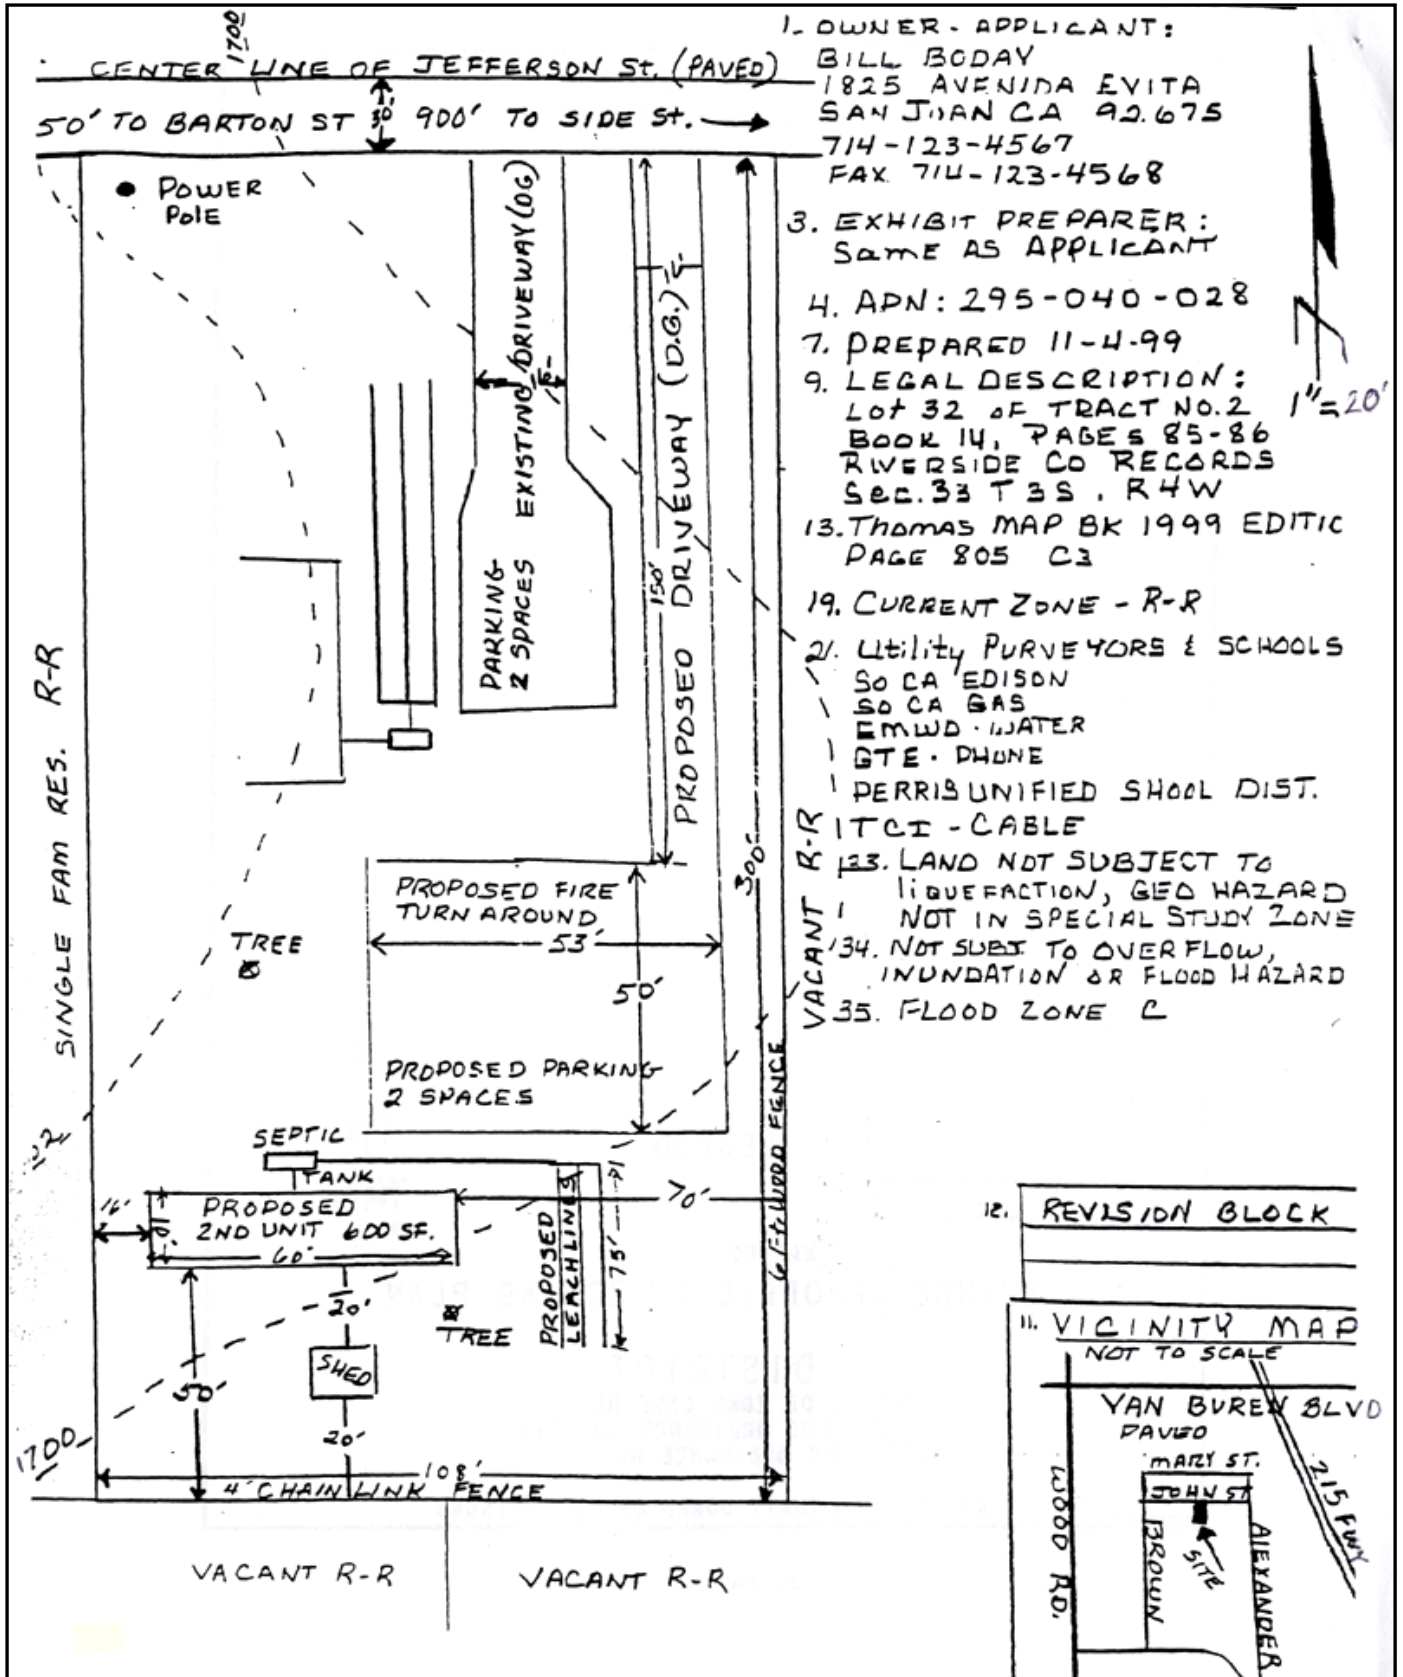 1700
CENTER LINE OF JEFFERSON St. (PAVED)
50' TO BARTON ST 30' 900' TO SIDE St.
POWER
POlE
EXISTING DRIVEWAY (DG)
PARKING
2 SPACES
PROPOSED DRIVEWAY (D.G.)
150'
300'
SINGLE FAM RES. R-R
VACANT R-R
TREE
PROPOSED FIRE
TURN AROUND
53'
50'
PROPOSED PARKING
2 SPACES
6 Ft. WOOD FENCE
SEPTIC
TANK
16'
PROPOSED
2ND UNIT 600 SF.
60'
10'
70'
PROPOSED
LEACHLINES
75'
20'
TREE
SHED
50'
20'
1700
108'
4' CHAIN LINK FENCE
VACANT R-R
VACANT R-R
1. OWNER - APPLICANT:
BILL BODAY
1825 AVENIDA EVITA
SAN JUAN CA 92675
714-123-4567
FAX 714-123-4568
3. EXHIBIT PREPARER:
SamE AS APPLICANT
4. APN: 295-040-028
7. PREPARED 11-4-99
9. LEGAL DESCRIPTION:
Lot 32 OF TRACT NO.2
BOOK 14, PAGES 85-86
RIVERSIDE CO RECORDS
SEC.33 T3S, R4W
1"=20'
13. Thomas MAP BK 1999 EDITIC
PAGE 805 C3
19. CURRENT ZONE - R-R
21. Utility PURVEYORS & SCHOOLS
SO CA EDISON
SO CA GAS
EMWD - WATER
GTE - PHONE
PERRIS UNIFIED SHOOL DIST.
TCI - CABLE
33. LAND NOT SUBJECT TO
liQUEFACTION, GEO HAZARD
NOT IN SPECIAL STUDY ZONE
34. NOT SUBJ. TO OVERFLOW,
INUNDATION OR FLOOD HAZARD
35. FLOOD ZONE C
12. REVISION BLOCK
11. VICINITY MAP
NOT TO SCALE
VAN BUREN BLVD
PAVED
MARY ST.
JOHN ST
WOOD RD.
BROWN
SITE
AlEXANDER
215 FWY